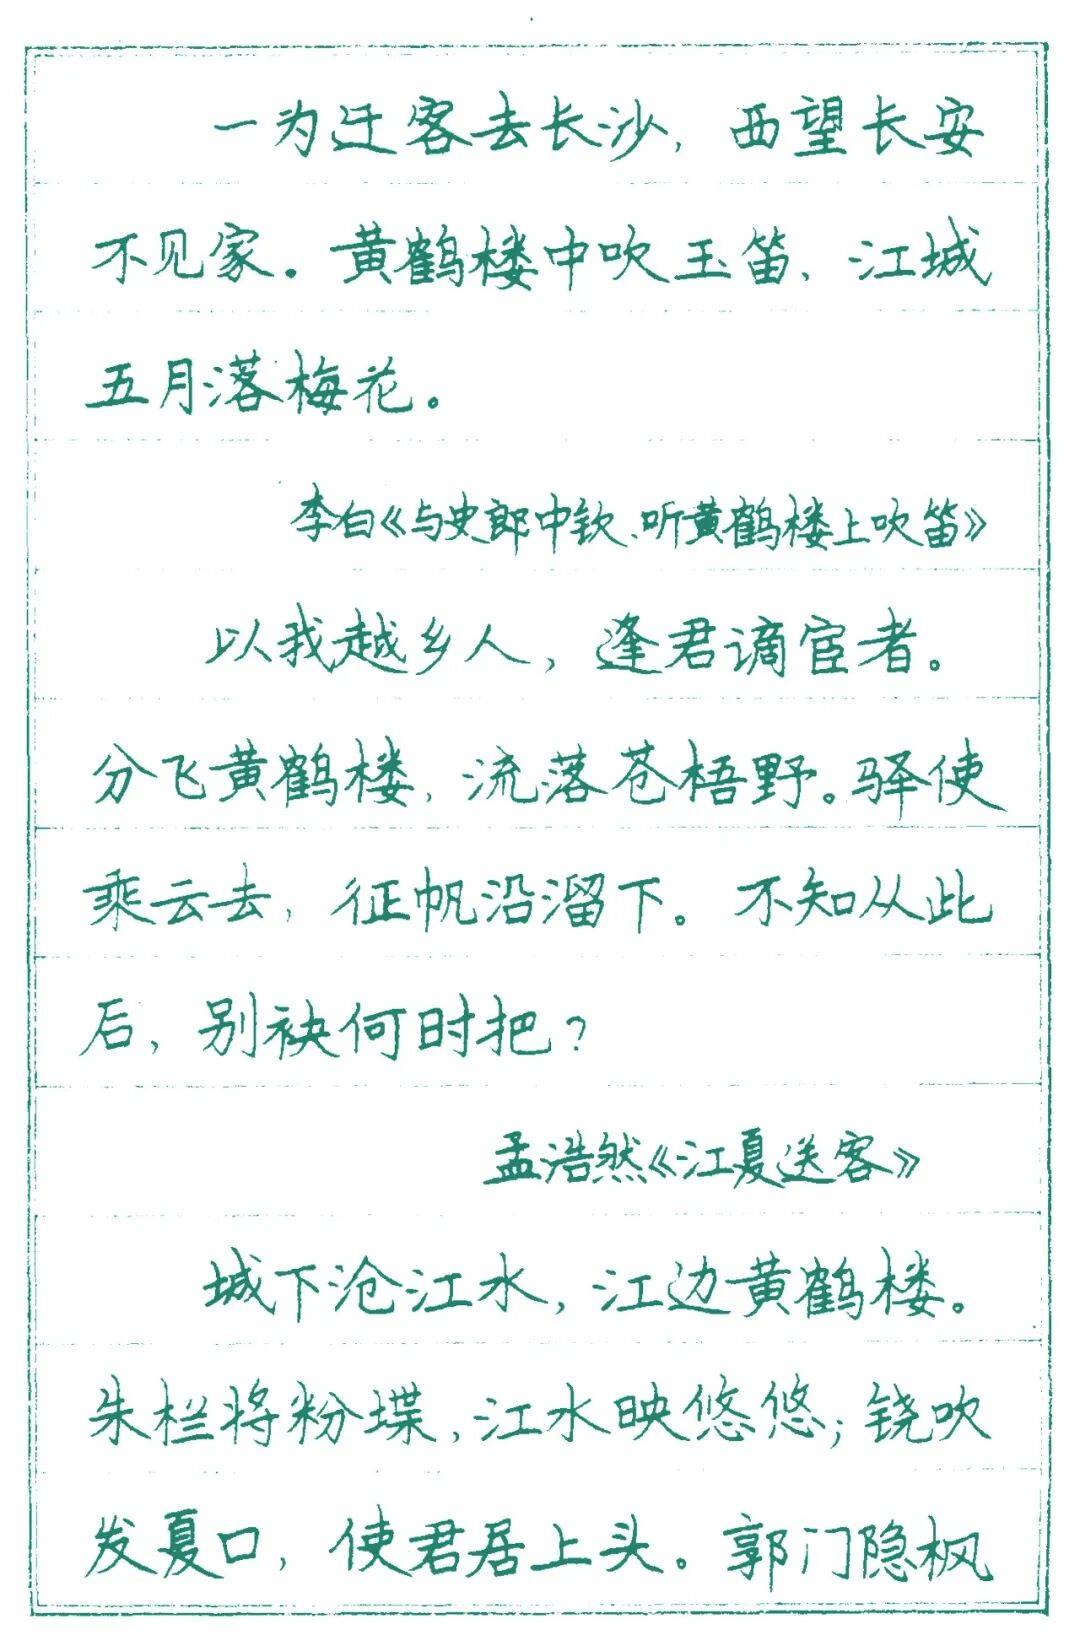 一为迁客去长沙，西望长安
不见家。黄鹤楼中吹玉笛、江城
五月落梅花。
李白《与史郎中钦、听黄鹤楼上吹笛》
以我越乡人，逢君谪宦者。
分飞黄鹤楼，流落苍梧野。驿使
乘云去，征帆沿溜下。不知从此
后，别袂何时把？
孟浩然《江夏送客》
城下沧江水，江边黄鹤楼。
朱栏将粉堞，江水映悠悠；铙吹
发夏口，使君居上头。郭门隐枫